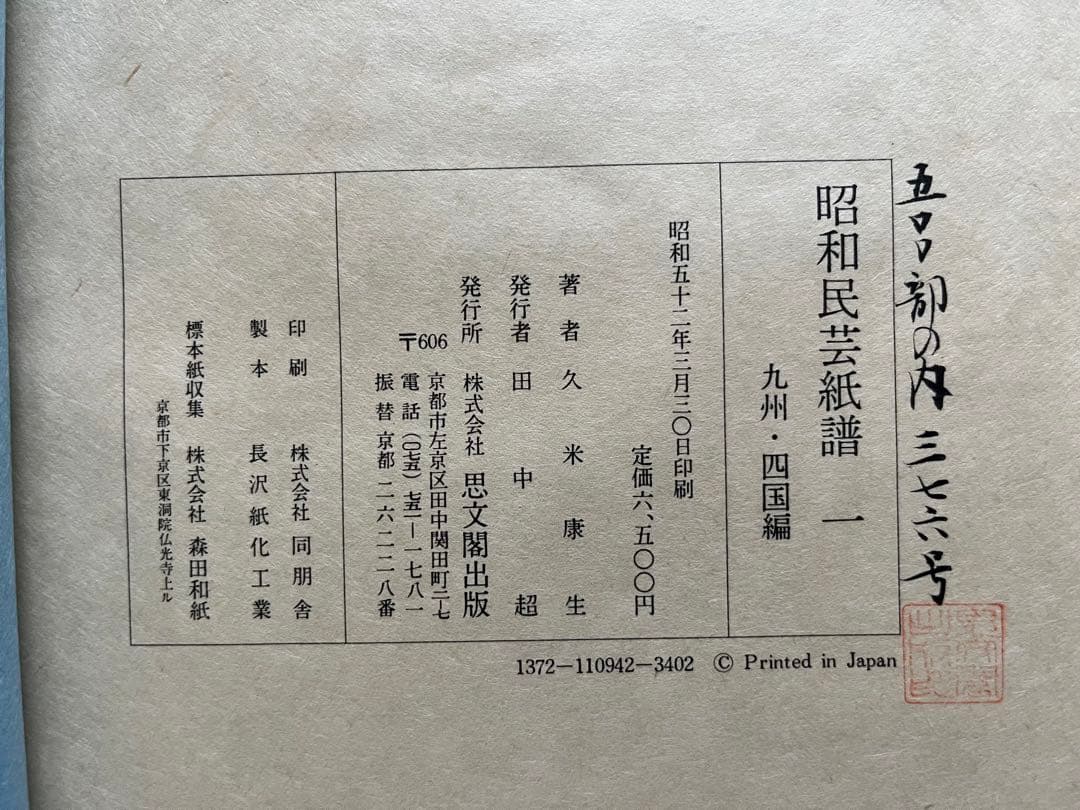 五〇〇部の内 三七六号
昭和民芸紙譜 一
九州・四国編
昭和五十二年三月三〇日印刷
定価六、五〇〇円
著者 久米康生
発行者 田中 超
発行所 株式会社 思文閣出版
〒606 京都市左京区田中関田町二―七
電話(〇七五)七五一―一七八一
振替 京都 二六二二八番
印刷 株式会社 同朋舎
製本 長沢紙化工業
標本紙収集 株式会社 森田和紙
京都市下京区東洞院仏光寺上ル
1372―110942―3402 © Printed in Japan